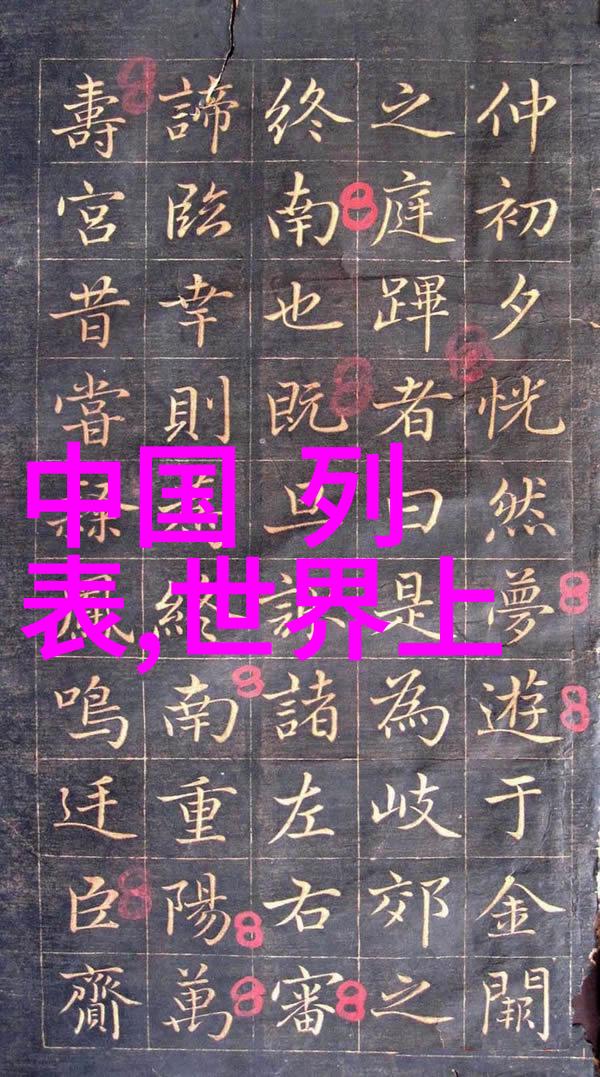 仲初夕恍然夢遊于金闕
之庭蹕者曰是為岐郊之
終南也既諸左右審
諦臨幸則終南重陽萬
壽宮昔嘗鳴廷臣齎
中国 列
表,世界上